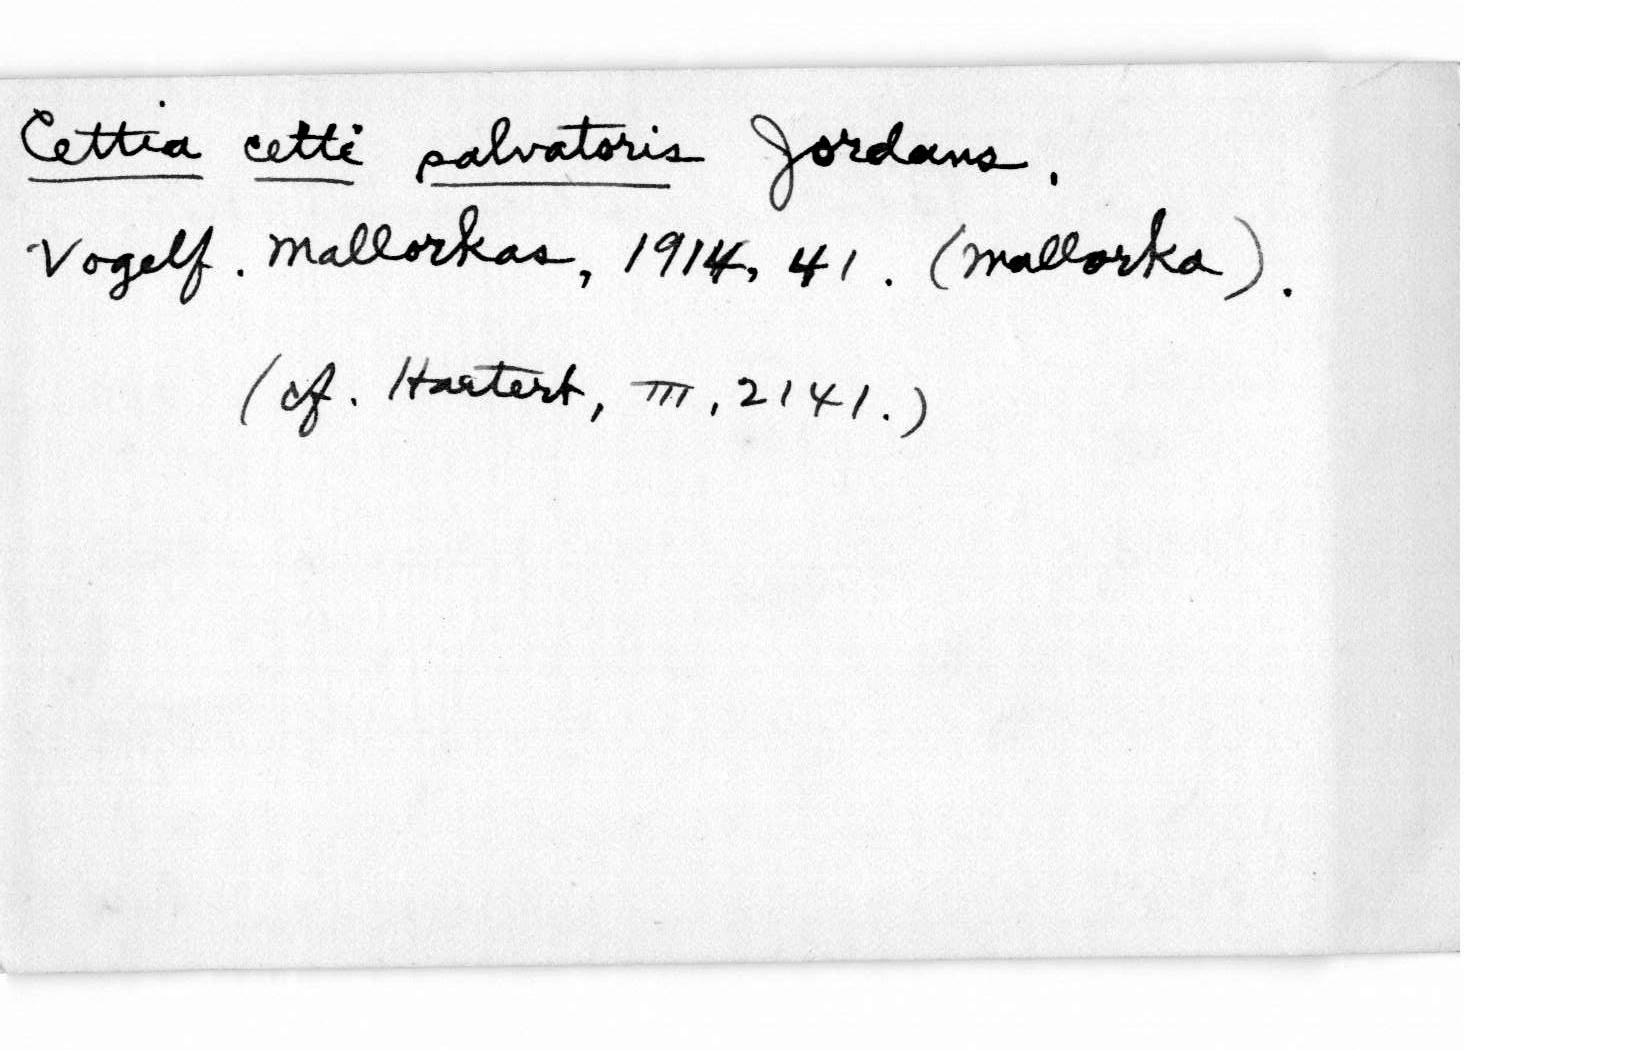 Cettia cetti salvatoris Jordans.
Vogelf. Mallorkas, 1914, 41. (Mallorka).
(cf. Hartert, III, 2141.)